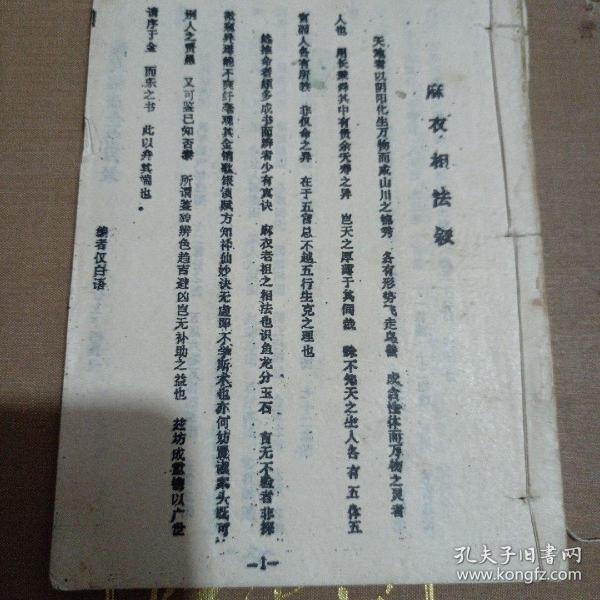 麻衣相法叙
天地者以阴阳化生万物而成山川之锦秀 各有形势飞走鸟兽 成含性体而万物之灵者
人也 用长乘舜其中有贵余夭寿之异 岂天之厚薄于其间哉 殊不知天之生人各有五体五
官而人各有所教 非仅命之异 在于五官总不越五行生克之理也
推命者颇多成书而辨者少有真诀 麻衣老祖之相法也识鱼龙分玉石 言无不验者非探
微视异理能不爽纤毫观其金锁歌银匙赋方知神仙妙诀无虚即不学斯术也亦何妨置诸案头既可
别人之贤愚 又可鉴已知否泰 所谓鉴貌辨色趋吉避凶岂无补助之益也 兹坊成重镌以广世
请序于金 而乐之书 此以弁其端也。
编者仅白语
—1—
孔夫子旧书网
www.kongfz.com